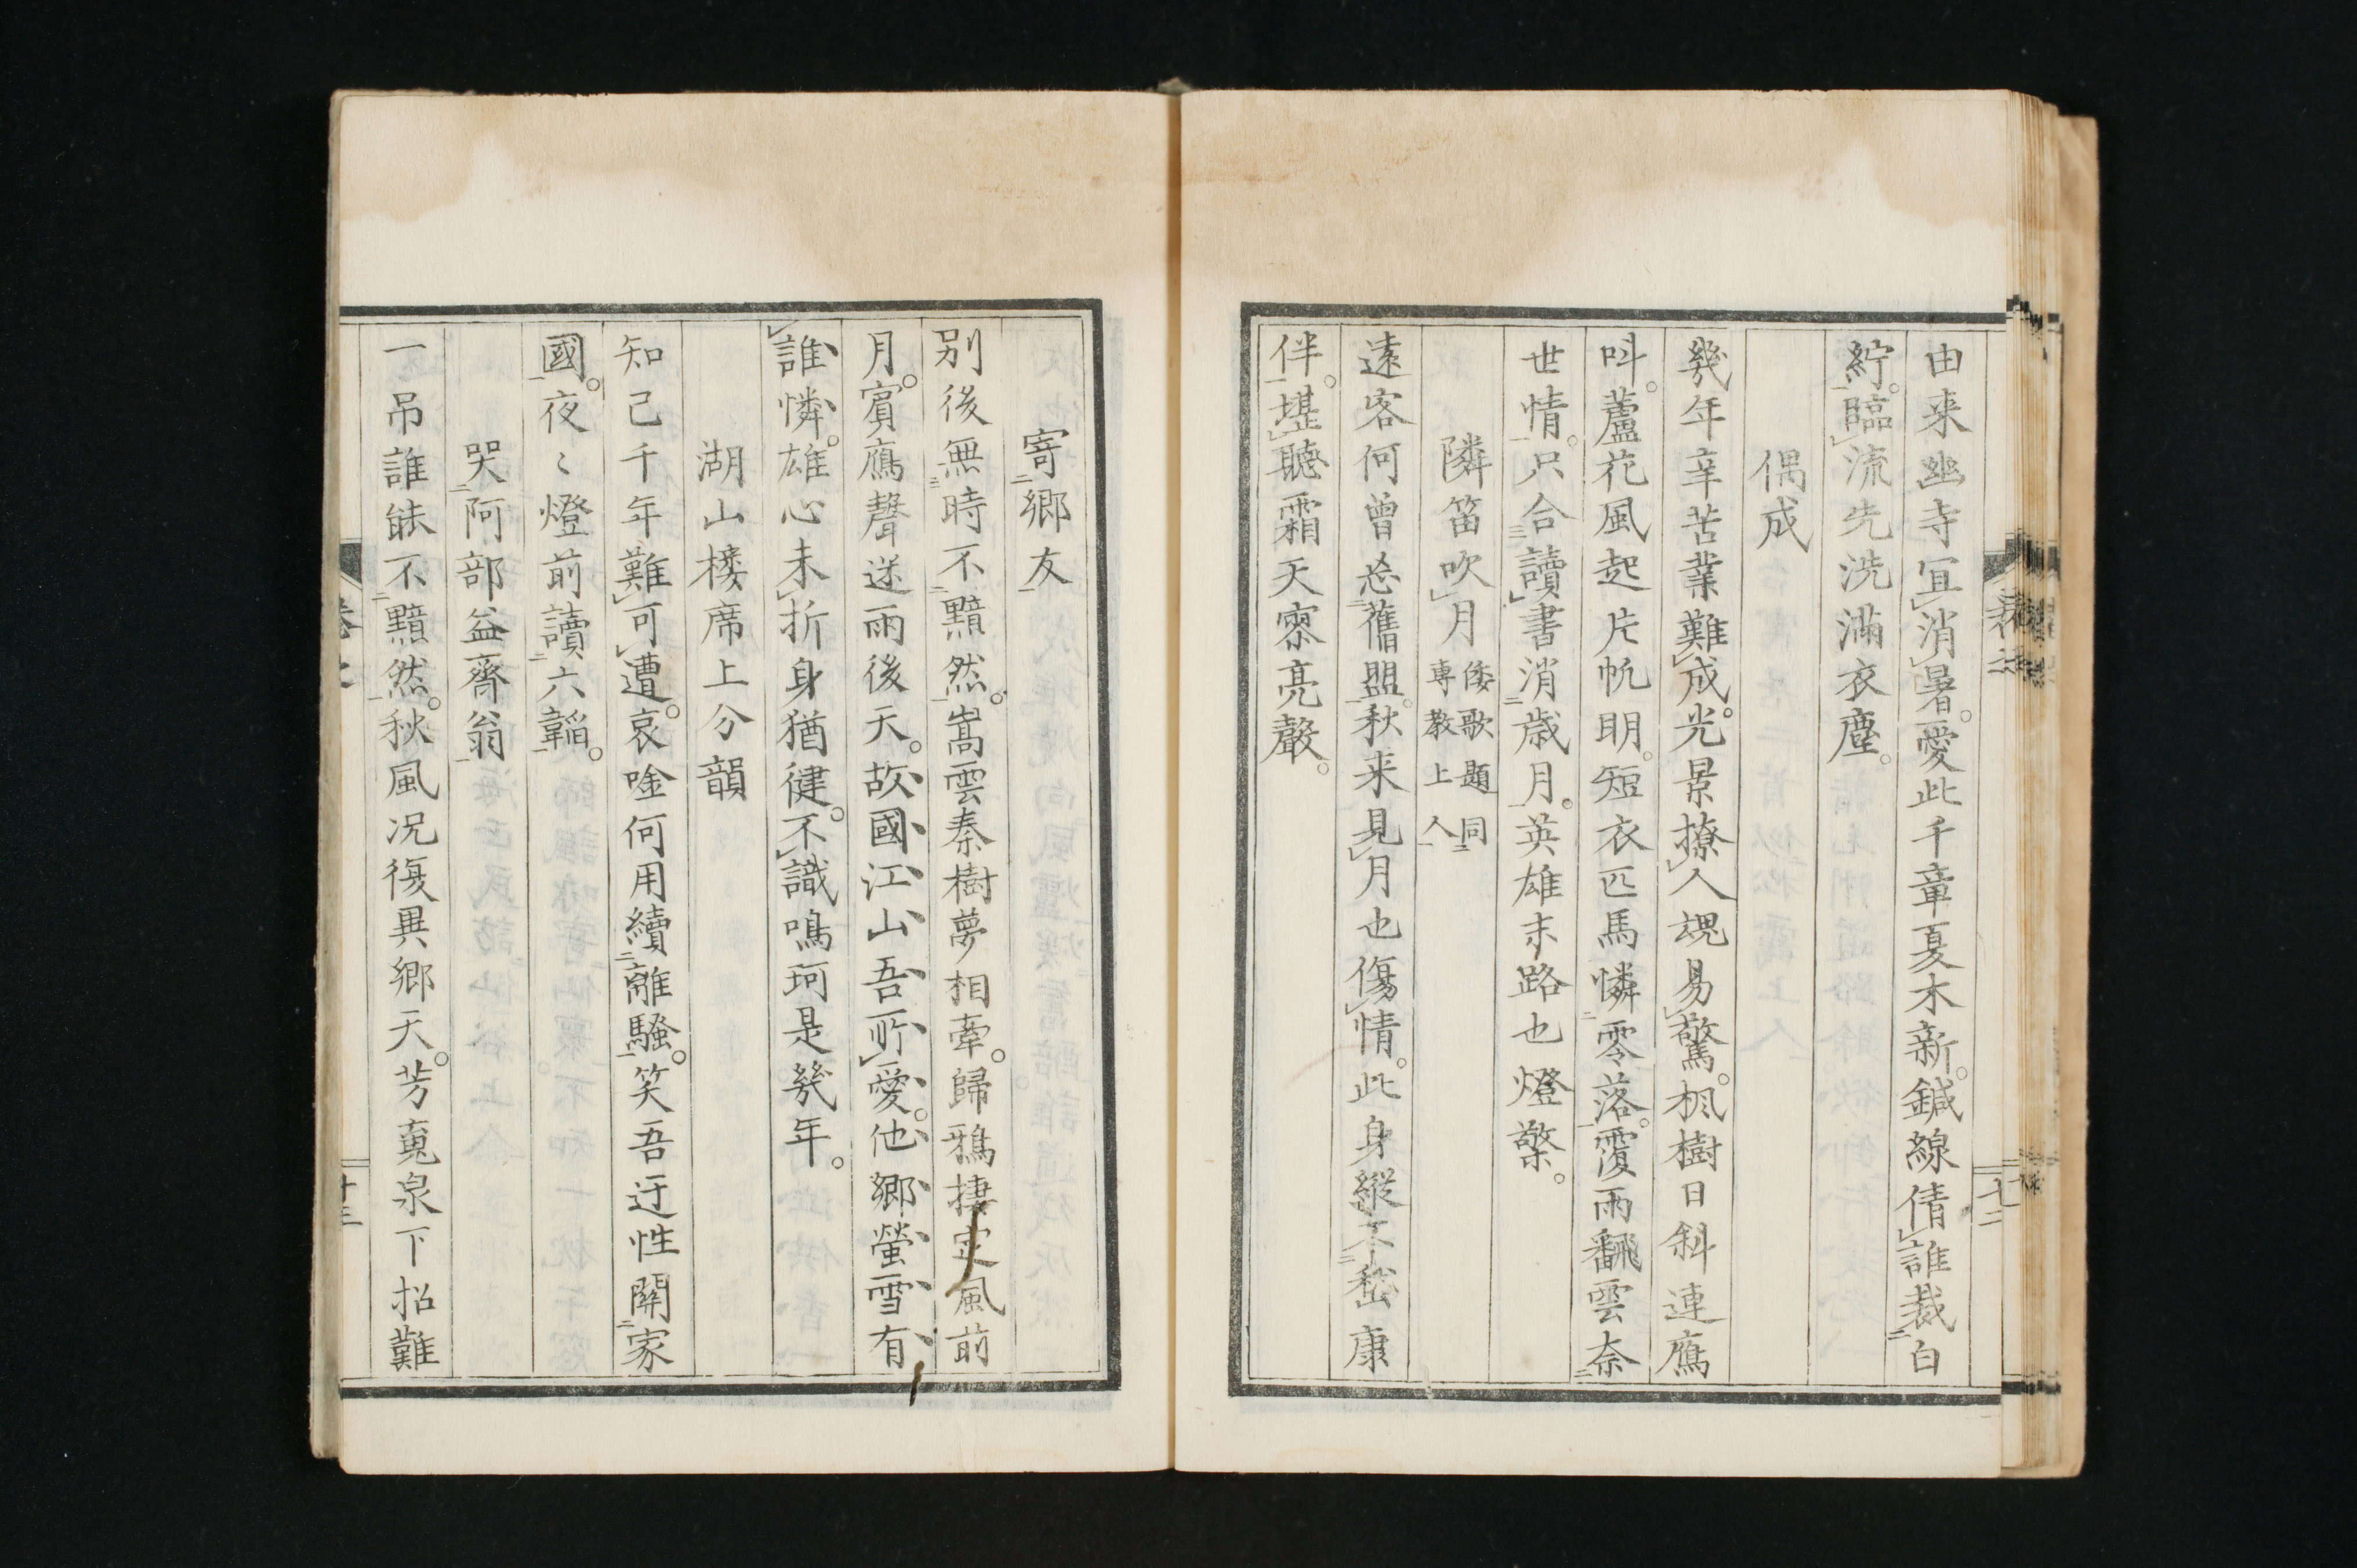 由来幽寺冝消暑愛此千章夏木新鍼線倩誰裁白
紵臨流先洗滿衣塵
偶成
幾年辛苦業難成光景撩人媿易驚楓樹日斜連鴈
叫蘆花風起片帆明短衣匹馬憐零落覆雨飜雲奈
世情只合讀書消歳月英雄末路也燈檠
隣笛吹月
倭歌題同
専教上人
遠客何曽忘舊盟秋来見月也傷情此身縱不嵆康
伴堪聽霜天寥亮聲
寄鄉友
別後無時不黯然嵩雲秦樹夢相牽歸鴉棲定風前
月賓鴈聲送雨後天故國江山吾所愛他鄉螢雪有
誰憐雄心未折身猶健不識鳴珂是幾年
湖山楼席上分韻
知己千年難可遭哀唫何用續離騷笑吾迂性關家
國夜〻燈前讀六韜
哭阿部益齋翁
一吊誰能不黯然秋風况復異鄉天芳䰟泉下招難
十三